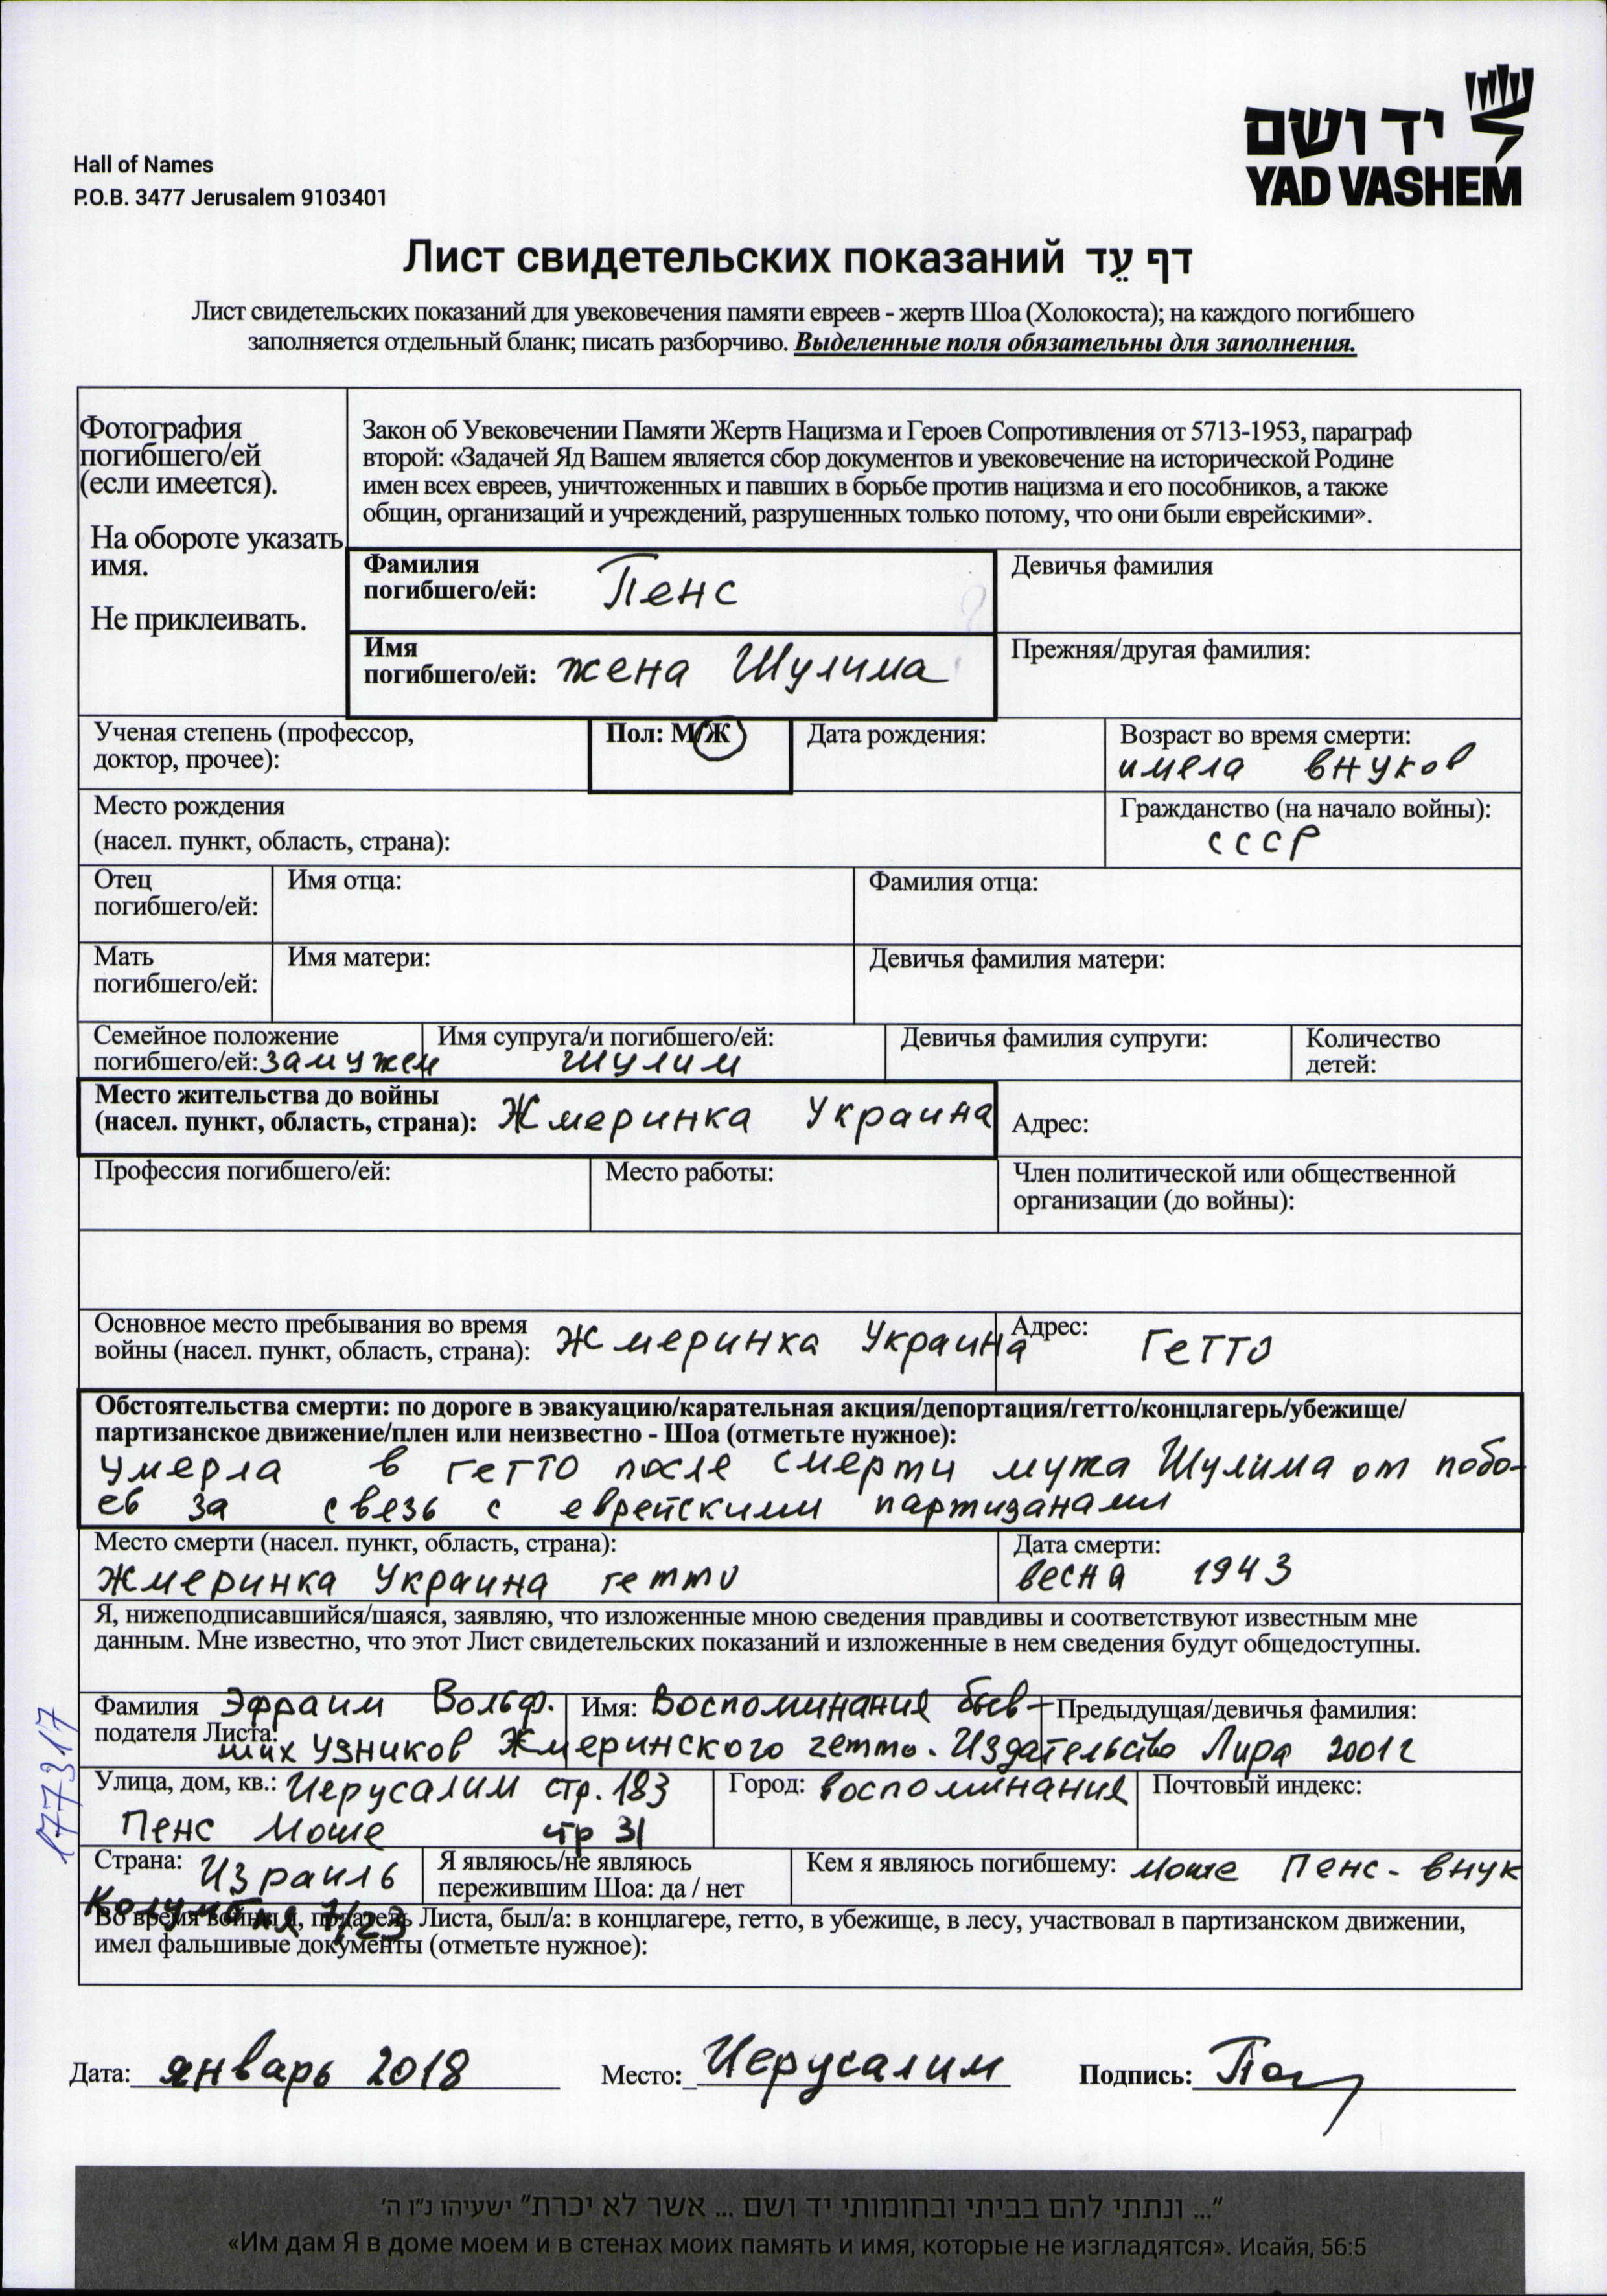 יד ושם
YAD VASHEM
Hall of Names
P.O.B. 3477 Jerusalem 9103401
Лист свидетельских показаний דף עֵד
Лист свидетельских показаний для увековечения памяти евреев - жертв Шоа (Холокоста); на каждого погибшего
заполняется отдельный бланк; писать разборчиво. Выделенные поля обязательны для заполнения.
Фотография
погибшего/ей
(если имеется).
На обороте указать
имя.
Не приклеивать.
Закон об Увековечении Памяти Жертв Нацизма и Героев Сопротивления от 5713-1953, параграф
второй: «Задачей Яд Вашем является сбор документов и увековечение на исторической Родине
имен всех евреев, уничтоженных и павших в борьбе против нацизма и его пособников, а также
общин, организаций и учреждений, разрушенных только потому, что они были еврейскими».
Фамилия
погибшего/ей: Пенс
Девичья фамилия
Имя
погибшего/ей: жена Шулима
Прежняя/другая фамилия:
Ученая степень (профессор,
доктор, прочее):
Пол: М/Ж
Дата рождения:
Возраст во время смерти:
имела внуков
Место рождения
(насел. пункт, область, страна):
Гражданство (на начало войны):
СССР
Отец
погибшего/ей:
Имя отца:
Фамилия отца:
Мать
погибшего/ей:
Имя матери:
Девичья фамилия матери:
Семейное положение
погибшего/ей: замужем
Имя супруга/и погибшего/ей:
Шулим
Девичья фамилия супруги:
Количество
детей:
Место жительства до войны
(насел. пункт, область, страна): Жмеринка Украина
Адрес:
Профессия погибшего/ей:
Место работы:
Член политической или общественной
организации (до войны):
Основное место пребывания во время
войны (насел. пункт, область, страна): Жмеринка Украина
Адрес: Гетто
Обстоятельства смерти: по дороге в эвакуацию/карательная акция/депортация/гетто/концлагерь/убежище/
партизанское движение/плен или неизвестно - Шоа (отметьте нужное):
умерла в гетто после смерти мужа Шулима от побо-
ев за свезь с еврейскими партизанами
Место смерти (насел. пункт, область, страна):
Жмеринка Украина гетто
Дата смерти:
весна 1943
Я, нижеподписавшийся/шаяся, заявляю, что изложенные мною сведения правдивы и соответствуют известным мне
данным. Мне известно, что этот Лист свидетельских показаний и изложенные в нем сведения будут общедоступны.
Фамилия Эфраим Вольф. Имя: Воспоминания быв- Предыдущая/девичья фамилия:
подателя Листа: ших узников Жмеринского гетто. Издательство Лира 2001г
Улица, дом, кв.: Иерусалим стр. 183
Пенс Моше стр 31
Город: воспоминания
Почтовый индекс:
Страна: Израиль
Я являюсь/не являюсь
пережившим Шоа: да / нет
Кем я являюсь погибшему: Моше Пенс - внук
Колумбия 7/23
Во время войны я, податель Листа, был/а: в концлагере, гетто, в убежище, в лесу, участвовал в партизанском движении,
имел фальшивые документы (отметьте нужное):
177317
Дата: январь 2018 Место: Иерусалим Подпись:
"... ונתתי להם בביתי ובחומותי יד ושם ... אשר לא יכרת" ישעיהו נ"ו ה'
«Им дам Я в доме моем и в стенах моих память и имя, которые не изгладятся». Исайя, 56:5